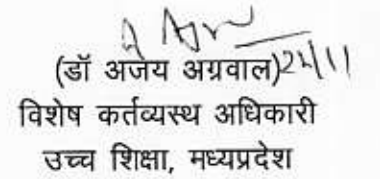 (डॉ अजय अग्रवाल) 24/11
विशेष कर्तव्यस्थ अधिकारी
उच्च शिक्षा, मध्यप्रदेश